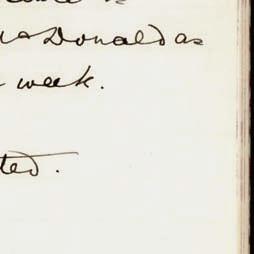 McDonald as
week.
ted.